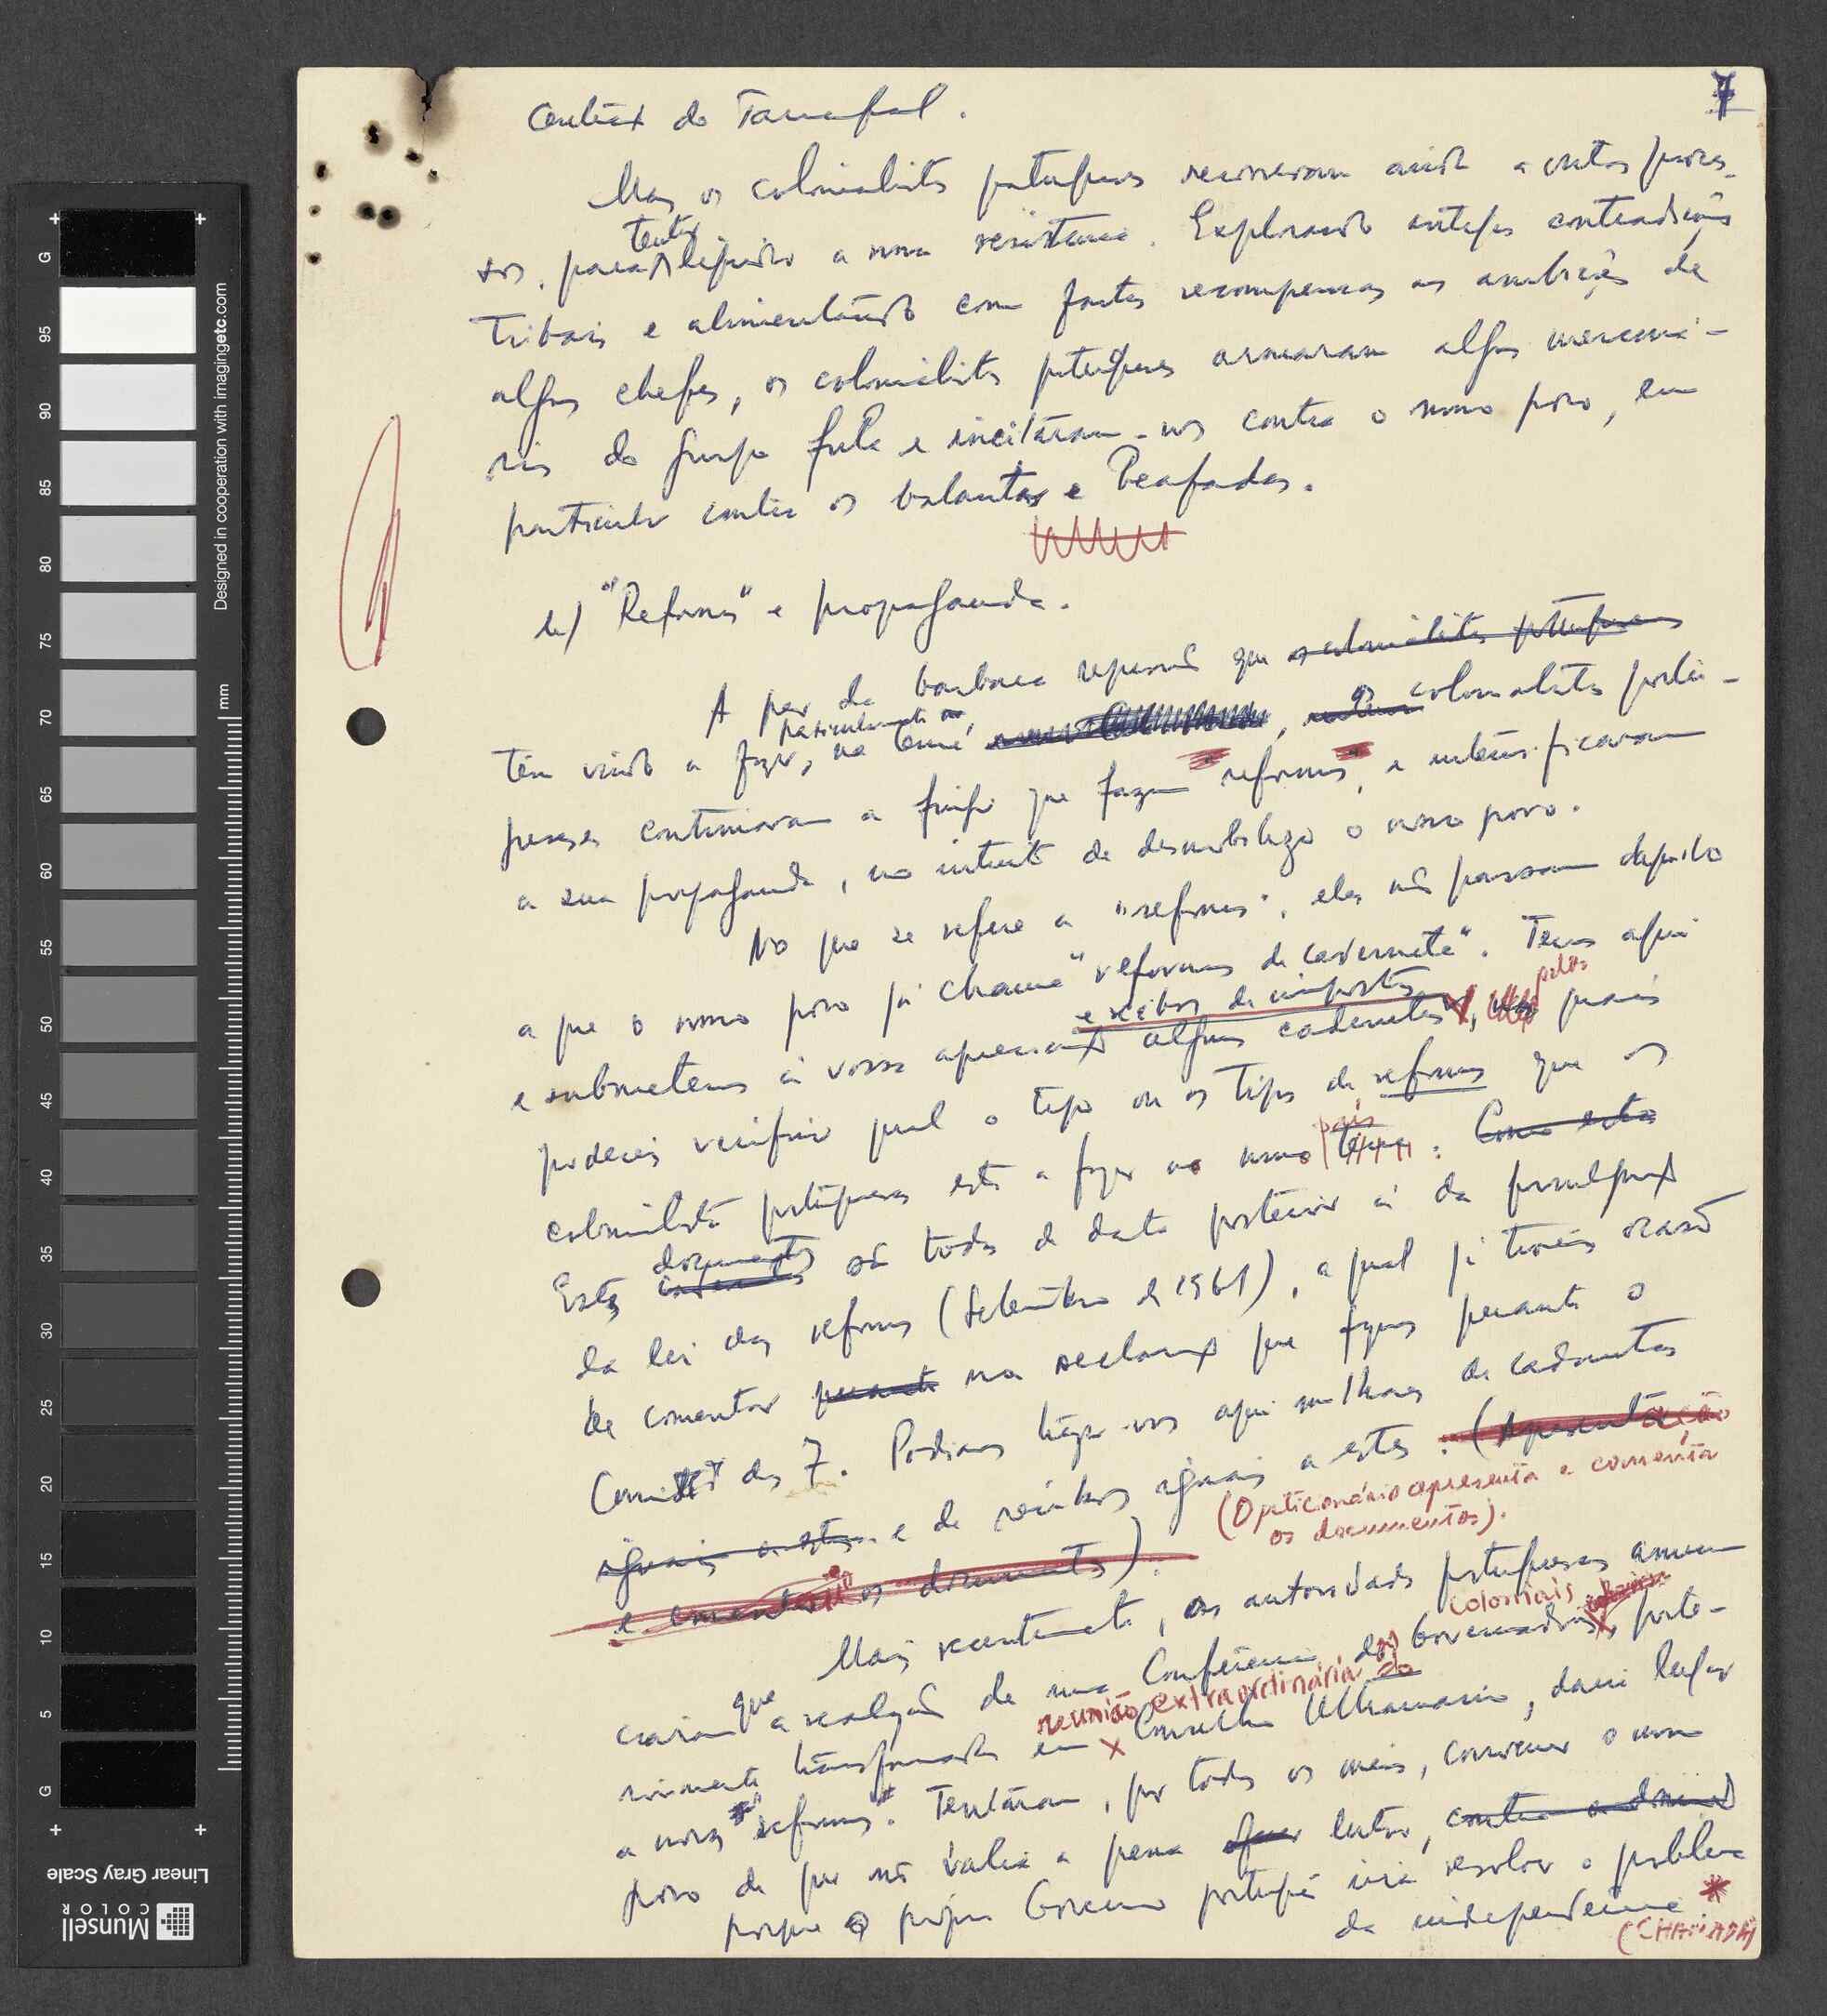 7
do Tarrafal.
Mas os colonialistas portugueses recorreram ainda a outros proces-
sos, para tentar liquidar a nossa resistência. Explorando antigas contradições
tribais e alimentando com fartas recompensas as ambições de
alguns chefes, os colonialistas portugueses armaram alguns mercená-
rios do grupo fula e incitaram-nos contra o nosso povo, em
particular contra os balantas e Beafadas.
b) "Reformas" e propaganda.
A par da barbara repressão que os colonialistas portugueses
têm vindo a fazer, particularmente na , os colonialistas portu-
gueses continuaram a fingir que fazem "reformas", e intensificaram
a sua propaganda, no intuito de desmobilizar o nosso povo.
No que se refere a "reformas", eles não passam daquilo
a que o nosso povo já chama "reformas de caderneta". Temos aqui
e submetemos à vossa apreciação algumas cadernetas e recibos de impostos, pelos quais
podereis verificar qual o tipo ou os tipos de reformas que os
colonialistas portugueses está a fazer no nosso país terra. Como estas
Estes documentos são todos de data posterior à da promulgação
da lei das reformas (Setembro de 1961), a qual já tivemos ocasião
de comentar perante na declaração que fizemos perante o
Comité dos 7. Podíamos trazer-vos aqui milhares de cadernetas
iguais a estas e de recibos iguais a estes. (Apresentação
(O peticionário apresenta e comenta
os documentos).
e comentar os documentos).
Mais recentemente, as autoridades portuguesas anun-
ciaram que a realização de uma Conferência dos Governadores coloniais, poste-
riormente transformada em reunião extraordinária do Conselho Ultramarino, daria lugar
a novas "reformas". Tentaram, por todos os meios, convencer o nosso
povo de que não valia a pena lutar, contra a
porque o próprio Governo português iria resolver o problema
da independência *
(CHAMADA)
+ + + +
G 95 90 85 80 75 70 65 60 55 50 45 40 35 30 25 20 15 10 5 G
mm
Designed in cooperation with imagingetc.com
Linear Gray Scale
Munsell
COLOR